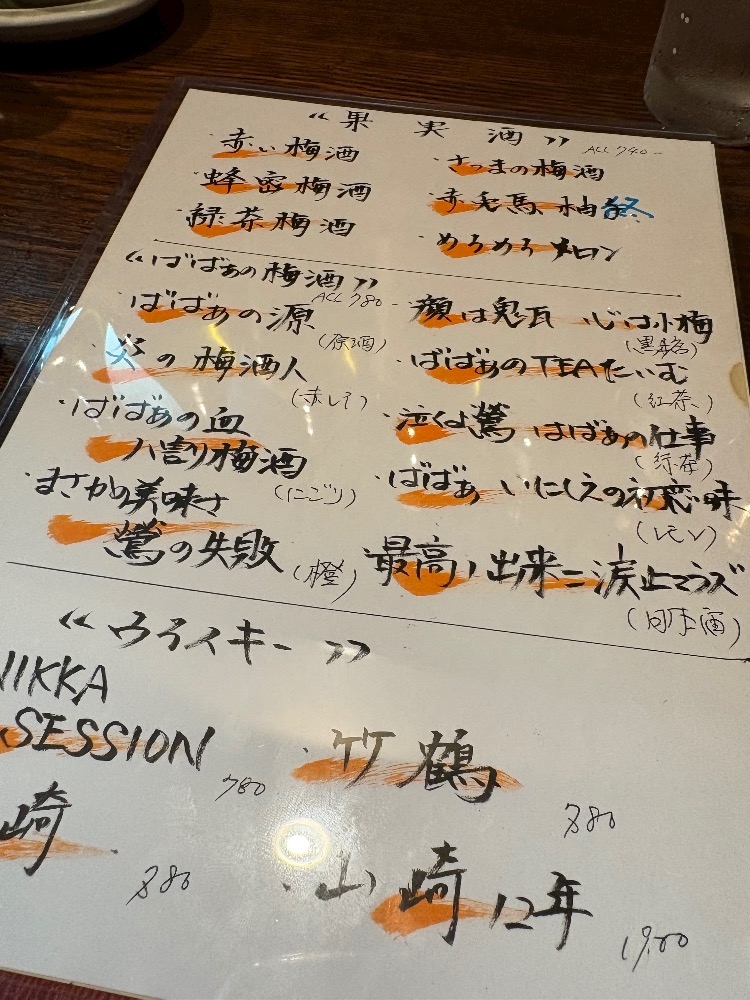 《果実酒》 ALL 740-
・赤い梅酒
・蜂蜜梅酒
・緑茶梅酒
・さつまの梅酒
・赤毛馬 柚 終
・めろめろメロン
《ばばぁの梅酒》
ALL 780-
・ばばぁの源
(原酒)
・炎の梅酒人
(赤レモ)
・ばばぁの血
八割り梅酒
(にごり)
・まさかの美味さ
鶯の失敗
(橙)
・顔は鬼瓦 心は小梅
・ばばぁのTEAたいむ
(紅茶)
・泣くよ鶯 はばぁの仕事
・ばばぁ いにしえの初恋の味
(レモン)
最高ノ出来ニ涙止マラズ
(日本酒)
《ウヰスキー》
NIKKA
SESSION
780
・竹鶴
880
崎
880
・山崎12年
1900